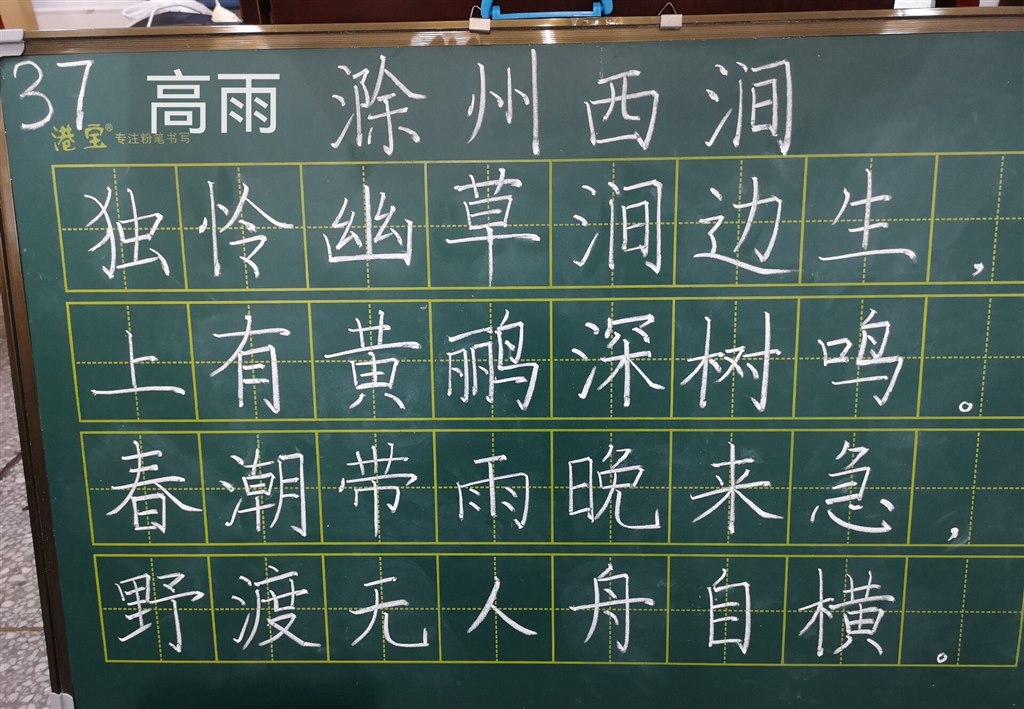 37 高雨 滁州西涧
港宝® 专注粉笔书写
独怜幽草涧边生，
上有黄鹂深树鸣。
春潮带雨晚来急，
野渡无人舟自横。